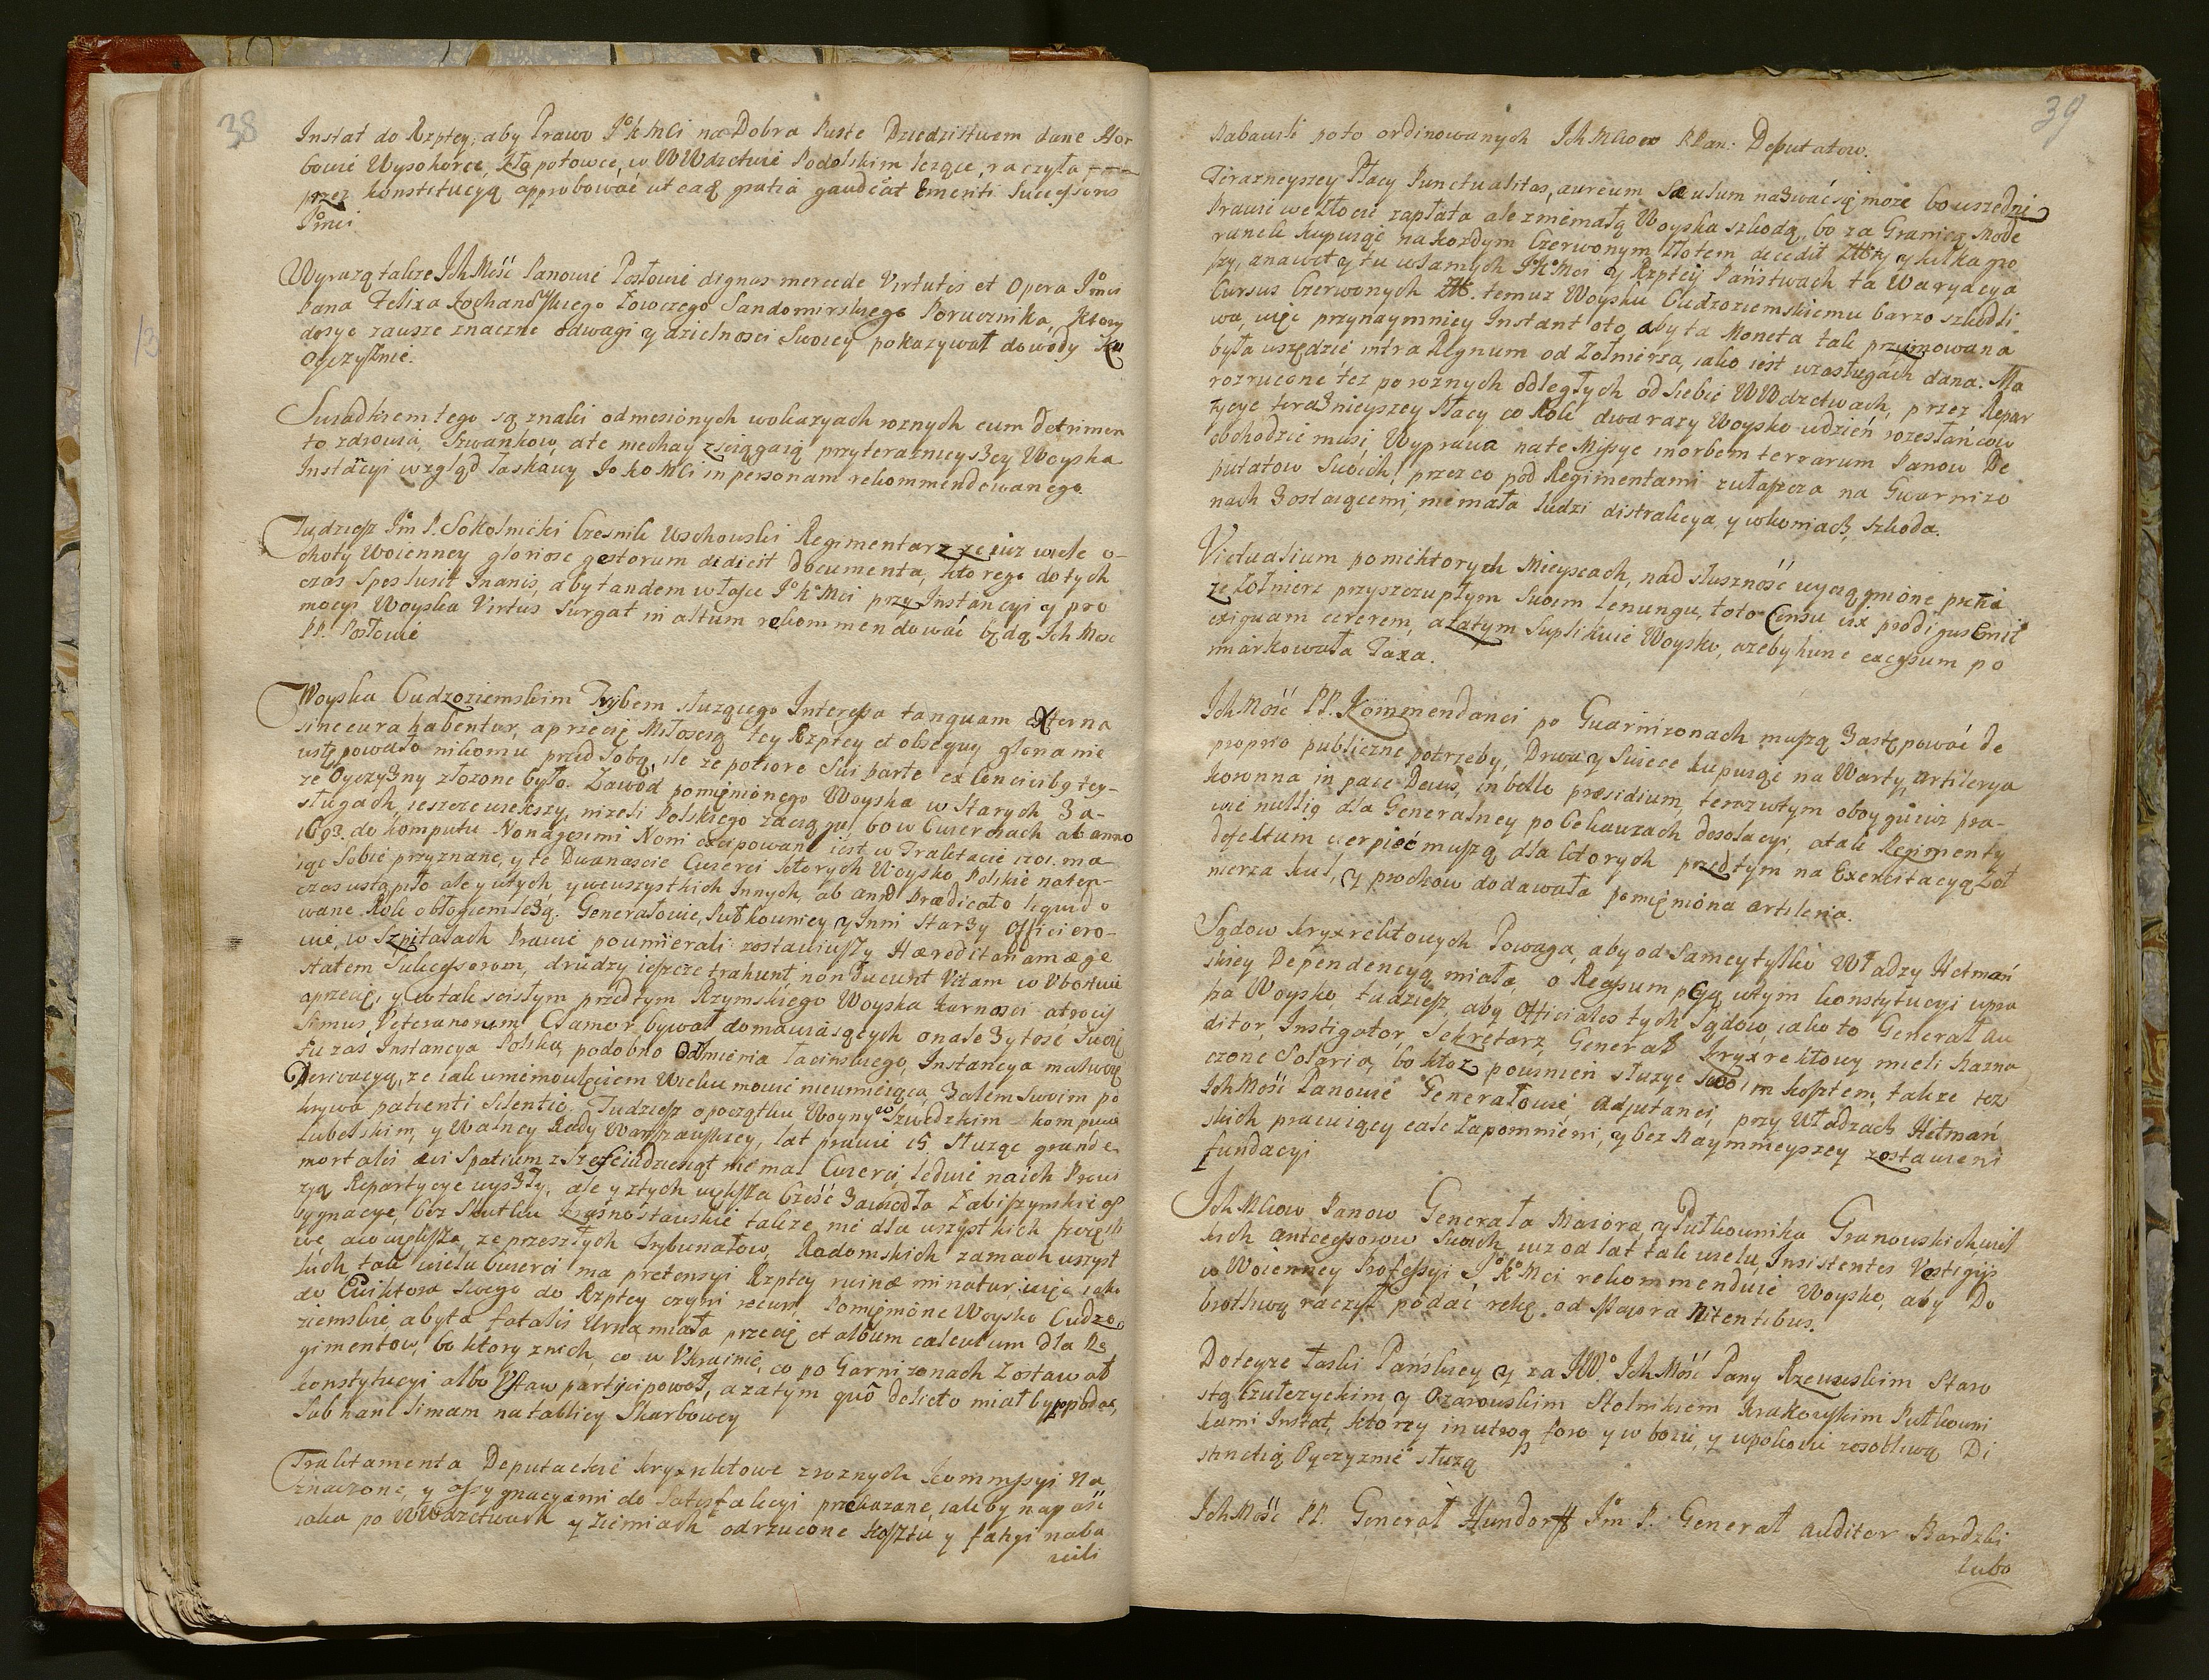 38
Instat do Rzptey, aby Prawo Jº Kº Mći na Dobra Puste Dziedzistwem dane Hor
bowie Wysokorce, w WWdztwie Podolskim lezące, raczyła
przez konstitucyą approbować ut eaq gratia gaudeat Emeriti Successores
Jmći
Wyrazą także Ich Mość Panowie Posłowie dignas mercede Virtutis et Opera Jmći
Pana Felixa Kochanowskiego Łowczego Sandomirskiego Porucznika, ktory
dosyc zawsze znaczne odwagi y dzielnosci Swoiey pokazywał dowody ku
Oyczyznie.
Swiadkiem tego są znaki odniesionych w okazyach roznych cum detrimen
to zdrowia, Szwankow, ale niechay zsciągaią przyteraznieyszey Woyska
Instācyi wzgląd łaskawy Jo Ko Mći in personam rekommendowanego.
Tudziesz Jm P. Sokolnicki Czesnik Wschowski Regimentarz ze iuz wiele o-
choty Woienney gloriose gestorum didicit documenta, ktorego do tych
czas Spes lusit Inanis, aby tandem w łasce Jº Kº Mci przy Instancyi y pro
mocyi Woyska Virtus Surgat in altum rekommendować będą Ich Mosc
PP. Posłowie
Woyska Cudzoziemskim Trybem słuzącego Interessa tanquam externa
sine cura habentur, a przecię Miłoscią tey Rzptey et obsequij gloria nie
ustępowało nikomu przed Sobą, ile ze potiore Sui parte
ze Oyczyzny złozone było. Zawod pomięnionego Woyska w Starych Za-
sługach, ieszcze wiekszy, nizeli Polskiego zaciągu, bo w Cwierciach ab anno
1693. do komputu Nonagesimi Noni excipowane iest w Traktacie 1701. ma
iąc Sobie przyznane, y te Dwanascie Cwierci ktorych Woysko Polskie naten-
czas ustąpiło ale y w tych, y we wszystkich Innych, ab anno Praedicato liquido
wane Role obłogiem lezą. Generałowie, Pułkownicy y Inni Starzy Officiero-
wie, w Szpitalach Prawie poumierali zostawiwszy Haereditariam aege
statem Sukcessorom, drudzy ieszcze trahunt, non ducunt Vitam w Vbostwie
a przecię, y w tak scisłym przedtym Rzymskiego Woyska karnosci atrocis
simus Veteranorum Clamor bywał domawiaiących o nalezytosc Swoię
tu zas Instancya Polska, podobno odmienia łacinskiego, Instancya ma Swoię
Derivacyą, ze iak uniemowlęciem Wieku mowic nieumieiąca, zalem Swoim po
krywa patienti Silentio. Tudziesz o początku Woyny w Szwedzkim kompucie
Lubelskim, y Walney Rady Warszawskiey, lat prawie 15 Słuząc grande
mortalis aevi Spatium z Szescidziesiąt niemal Cwierci, ledwie na ich Prowi
zyą Repartycye wyszły, ale y z tych więksa Częsć zawiodła Zabiszynskie as
sygnacye, bez Skutku Krasnostawskie takze nie dla wszystkich
we, a co większa, ze przeszłych Trybunałow, Radomskich zamach wszyst
kich tak wielu Cwierci ma pretensyi Rzptey ruinae minatur, więc iako
do Ewiktora Swego do Rzptey czyni recurs Pomięnione Woysko Cudzo
ziemskie, aby ta fatalis Urna miała przecię et album calculum dla Re
gimentow, bo ktory z nich, co w Vkrainie, co po Garnizonach Zostawał
konstytucyi albo Vstaw participował, a zatym quō delicto miał by
Sub hanc limam na tablicy Skarbowey
Traktamenta Deputackie kryxrektowe z roznych kommissyi Na
znaczone, y assygnacyami do Satysfakcyi przekazane, iak by napaść
iaka po WWdztwach y Ziemiach odrzucone kosztu y fatygi naba
wili
39
Nabawili poto ordinowanych Ich Mciow PPan: Deputatow.
Terazneyszey Płacy Punctualitas, aureum saeculum nazwać sę moze bo wszędzi
Prawie we złocie zapłata ale z niemałą Woyska szkodą, bo za Granicą Mode
runek kupuiąc na kozdym Czerwonym Złotem decedit y kilka gro
szy, a nawet y tu w samych Jº Kº Mci y Rzptey Państwach ta Waryacya
Cursus Czerwonych Zł. temuz Woysku Cudzoziemskiemu barzo szkodli
wa, więc przynaymniey Instant oto, aby ta Moneta tak przyimowana
była wszędzie intra Regnum od Zołnierza, iako iest w zasługach dana. Ma
rozrucone tez po roznych odległych od Siebie WWdztwach, przez Repar
tycye teraznieyszey Płacy co Rok dwa razy Woysko udzień rozesłańcow
obchodzic musi Wyprawa na te Missye in orbem terrarum Panow De
putatow Swoich, przez co pod Regimentami zwłaszcza na Gwarnizo
nach zostaiącemi, niemała ludzi distrakcya, y w koniach szkoda.
Victualium po niektorych Mieyscach, nad słuszność wyciągnione
ze Zołnierz przy szczupłym Swoim lenungu, toto Censu vix prodigus emit
exiguam cererem, a zatym Suplikuie Woysko, azeby hunc excessum po
miarkowała Taxa.
Ich Mość PP. Kommendanci po Guarnizonach muszą zastępowac de
proprio publiczne potrzeby, Drwa y Swiece kupuiąc na Warty, Artilerya
koronna in pace Decus, in bello praesidium, teraz w tym oboygu iuz pra-
wie nullig dla Generalney po Cekauzach desolacyi, a tak Regimenty
defektum cierpieć muszą dla ktorych przedtym na Exercitacyą Zoł
nierza kul, y prochow dodawała pomięniona artileria.
Sądow kryxrektowych Powaga, aby od Samey tylko Władzy Hetmań
skiey Dependencyą miała, o Reassumpcyą w tym konstytucyi upra
sza Woysko, tudziesz, aby Officiales tych Sądow, iako to Generał Au
ditor, Instigator, Sekretarz, General kryxrektowy mieli Nazna
czone Solaria, bo ktoz powinien słuzyc swoim kosztem, takze tez
Ich Mość Panowie Generałowie, Adjutanci, przy Władzach Hetmań
skich pracuiący cale Zapomnieni, y bez Naymnieyszey zostawieni
fundacyi
Ich Mciow Panow Generała Maiora, y Pułkownika Granowskich, wiel
kich antecessorow Swoich iuz od lat tak wielu, Insistentes Vestigijs
w Woienney Professyi Jº Kº Mci rekommenduie Woysko, aby Do
brotliwą raczył podać rękę od Maiora Nitentibus.
Doteyze łaski Pańskiey y za JWº Ich Mość Pany Rzewuskim Staro
stą y Ozarowskim Stolnikiem Krakowskim Pułkowni
kami Instat, ktorzy in utroq foro y w boiu, y w pokoiu zosobliwą Di
stinctią Oyczyznie słuzą
Ich Mość PP. Generał Hundorff Jm P. General Auditor Bardzki
lubo